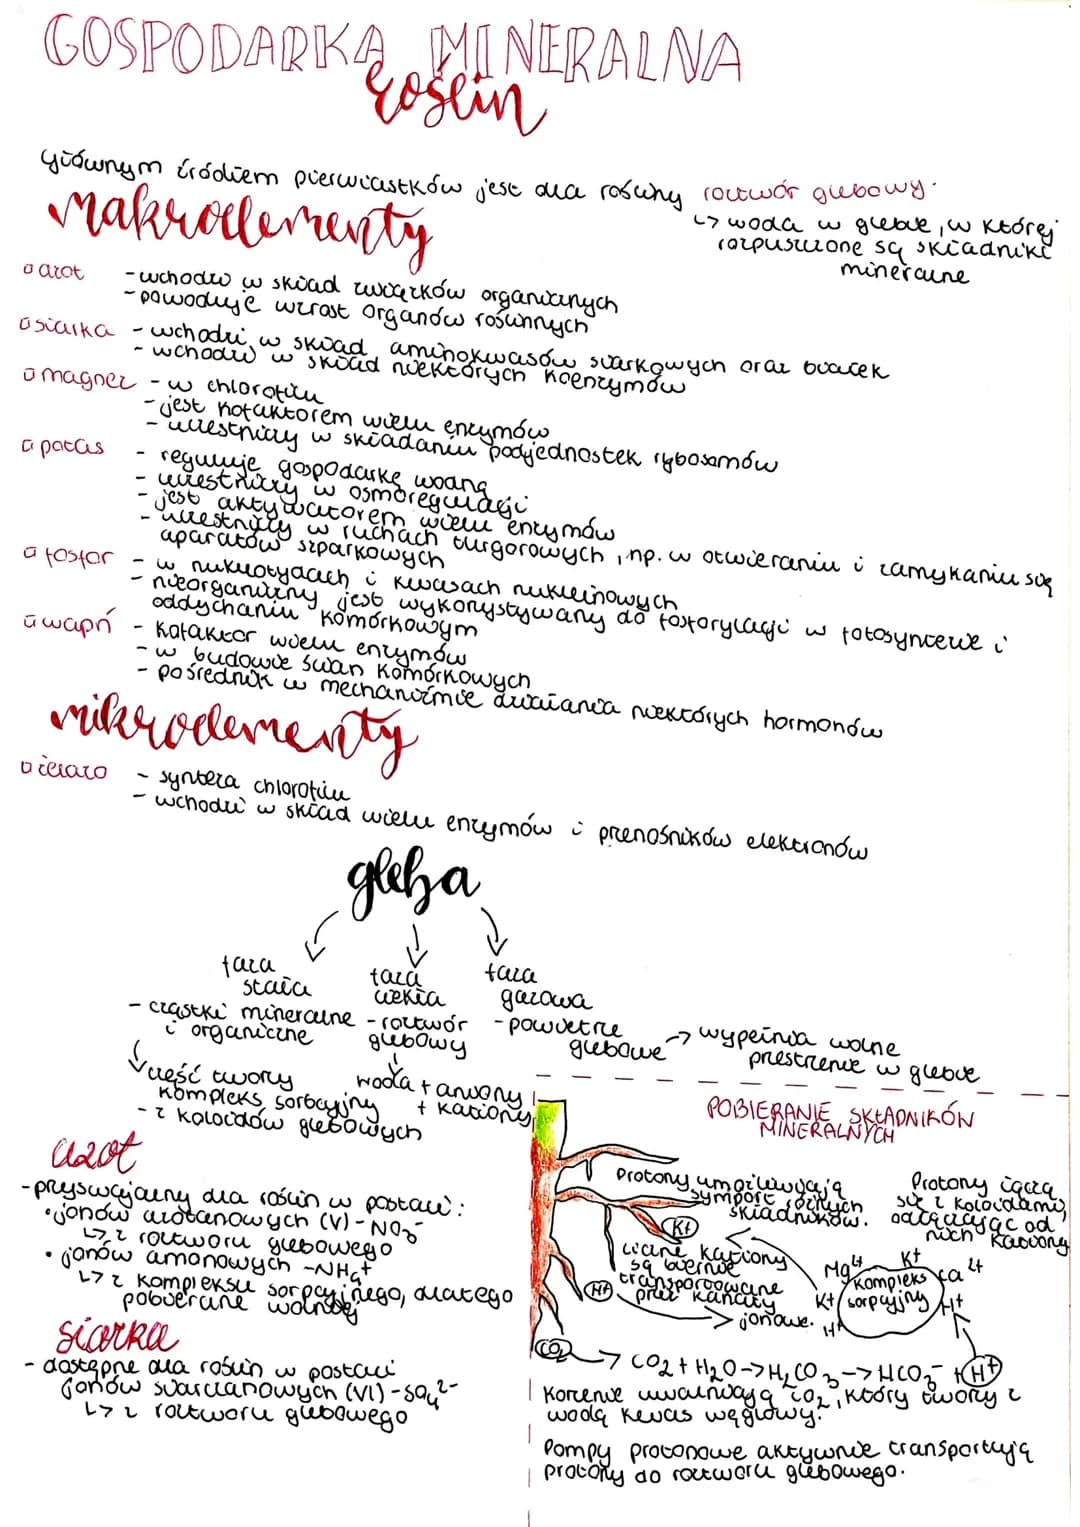 GOSPODARKA MINERALNA
roślin
Głównym źródłem pierwiastków jest dla rośliny roztwór glebowy.
↳ woda w glebie, w której
rozpuszczone są składniki
mineralne
Makroelementy
azot
- wchodzi w skład związków organicznych
- powoduje wzrost organów roślinnych
siarka
- wchodzi w skład aminokwasów siarkowych oraz białek
- wchodzi w skład niektórych koenzymów
magnez
- w chlorofilu
- jest kofaktorem wielu enzymów
- uczestniczy w składaniu podjednostek rybosomów
potas
- reguluje gospodarkę wodną
- uczestniczy w osmoregulacji
- jest aktywatorem wielu enzymów
- uczestniczy w ruchach turgorowych, np. w otwieraniu i zamykaniu się
aparatów szparkowych
fosfor
- w nukleotydach i kwasach nukleinowych
- nieorganiczny jest wykorzystywany do fosforylacji w fotosyntezie i
oddychaniu komórkowym
wapń
- kofaktor wielu enzymów
- w budowie ścian komórkowych
- pośrednik w mechanizmie działania niektórych hormonów
mikroelementy
żelazo
- synteza chlorofilu
- wchodzi w skład wielu enzymów i przenośników elektronów
gleba
faza
stała
- cząstki mineralne
i organiczne
część tworzy
kompleks sorbcyjny
- z koloidów glebowych
faza
ciekła
- roztwór
glebowy
woda + aniony
+ kationy
faza
gazowa
- powietrze
glebowe
→ wypełnia wolne
przestrzenie w glebie
azot
- przyswajalny dla roślin w postaci:
• jonów azotanowych (V) - NO3-
↳ z roztworu glebowego
• jonów amonowych - NH4+
↳ z kompleksu sorpcyjnego, dlatego
pobierane wolniej
siarka
- dostępne dla roślin w postaci
jonów siarczanowych (VI) - SO4 2-
↳ z roztworu glebowego
POBIERANIE SKŁADNIKÓW
MINERALNYCH
Protony umożliwiają
symport różnych
składników.
Protony łączą
się z koloidami,
odłączając od
nich kationy
K+
Liczne kationy
są biernie
transportowane
przez kanały
jonowe.
H+
Mg2+
K+
Ca2+
K+
kompleks
sorpcyjny
H+
H+
CO2
→ CO2 + H2O → H2CO3 → HCO3- + H+
Korzenie uwalniają CO2, który tworzy z
wodą kwas węglowy.
Pompy protonowe aktywnie transportują
protony do roztworu glebowego.